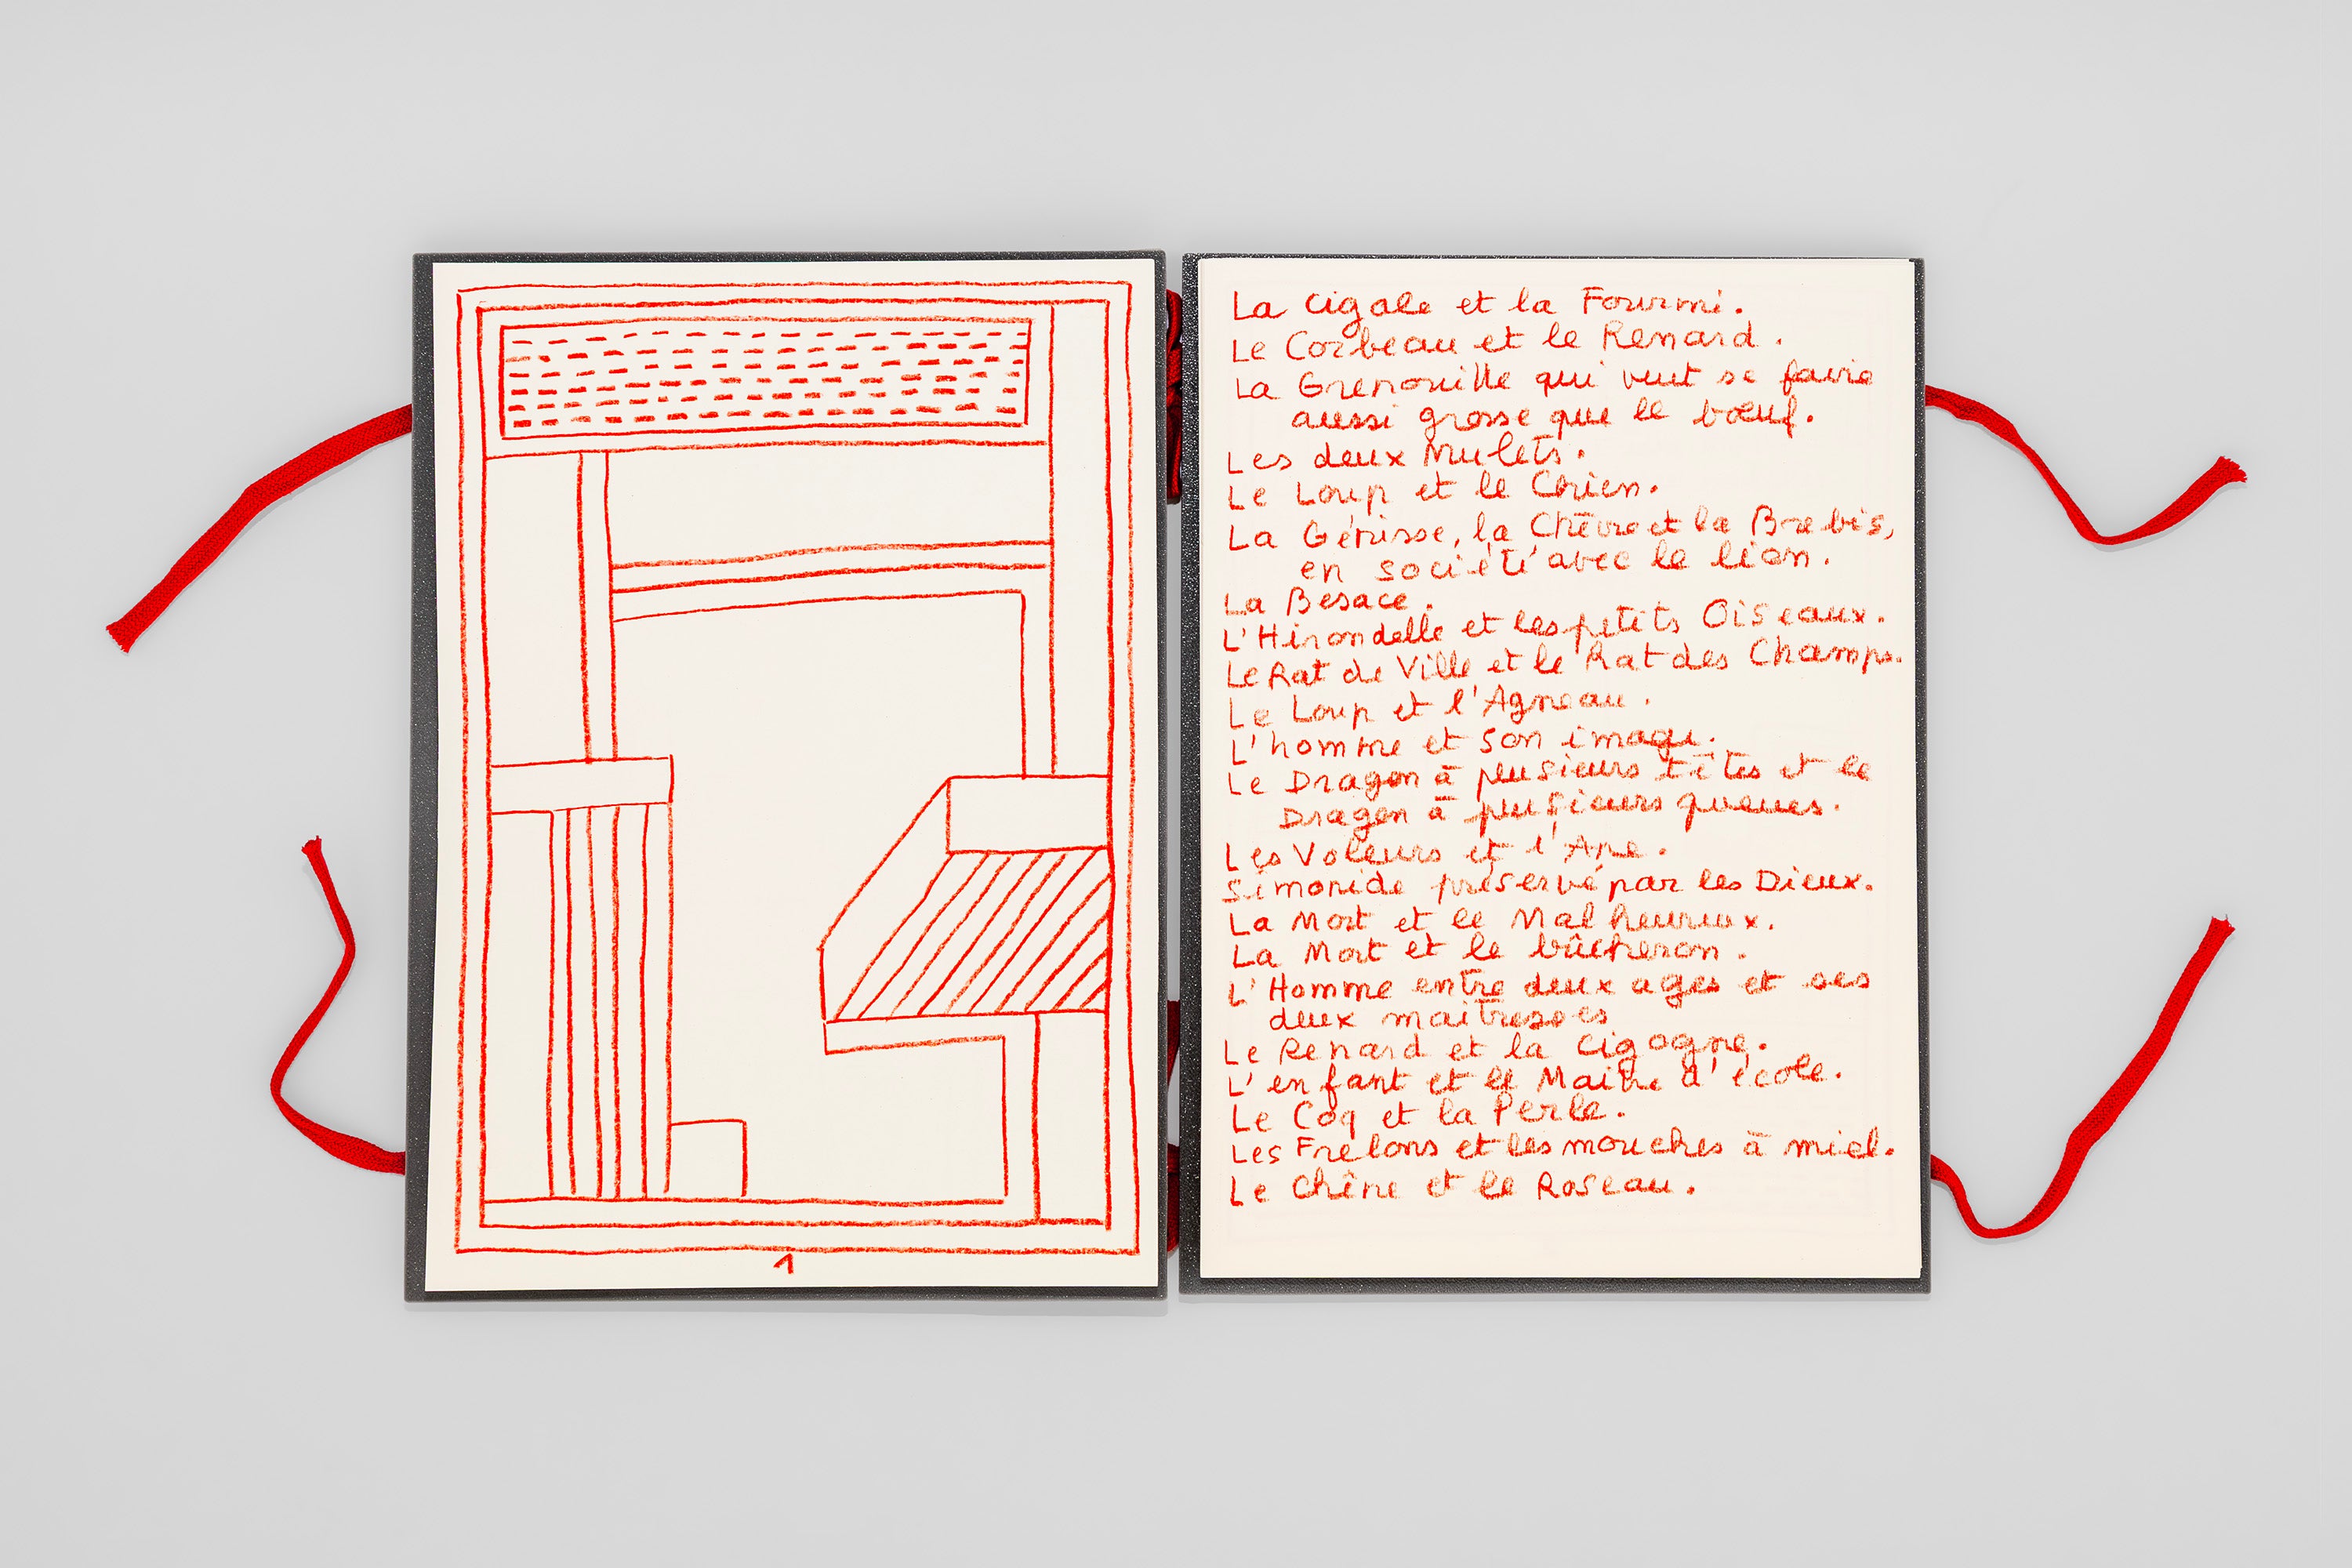 1
La Cigale et la Fourmi.
Le Corbeau et le Renard.
La Grenouille qui veut se faire
aussi grosse que le bœuf.
Les deux Mulets.
Le Loup et le Chien.
La Génisse, la Chèvre et la Brebis,
en société avec le lion.
La Besace.
L'Hirondelle et les petits Oiseaux.
Le Rat de Ville et le Rat des Champs.
Le Loup et l'Agneau.
L'homme et son image.
Le Dragon à plusieurs têtes et le
Dragon à plusieurs queues.
Les Voleurs et l'Ane.
Simonide préservé par les Dieux.
La Mort et le Malheureux.
La Mort et le bûcheron.
L'Homme entre deux ages et ses
deux maitresses
Le Renard et la Cigogne.
L'enfant et le Maitre d'école.
Le Coq et la Perle.
Les Frelons et les mouches à miel.
Le Chêne et le Roseau.